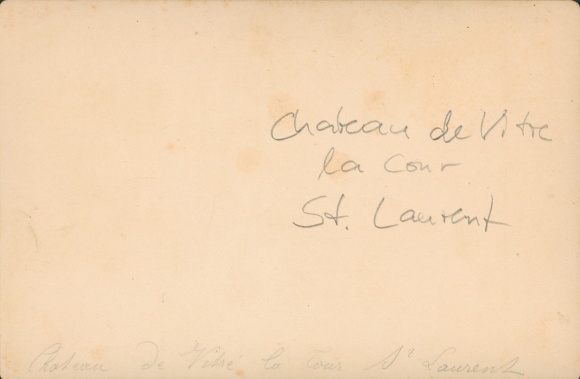 Chateau de Vitre
la Cour
St. Laurent
Chateau de Vitré la Tour St Laurent